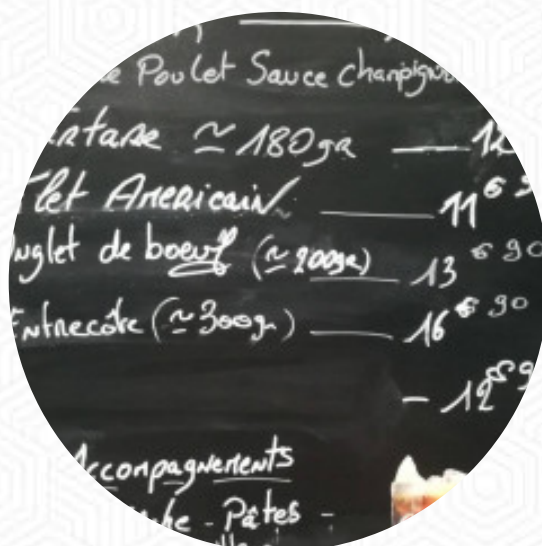 Poulet Sauce Champign
≃ 180gr — 12
Americain — 11€9
de boeuf (≃ 200gr) — 13€90
Entrecôte (≃ 300gr) — 16€90
- 12€9
Accompagnements
- Pâtes -